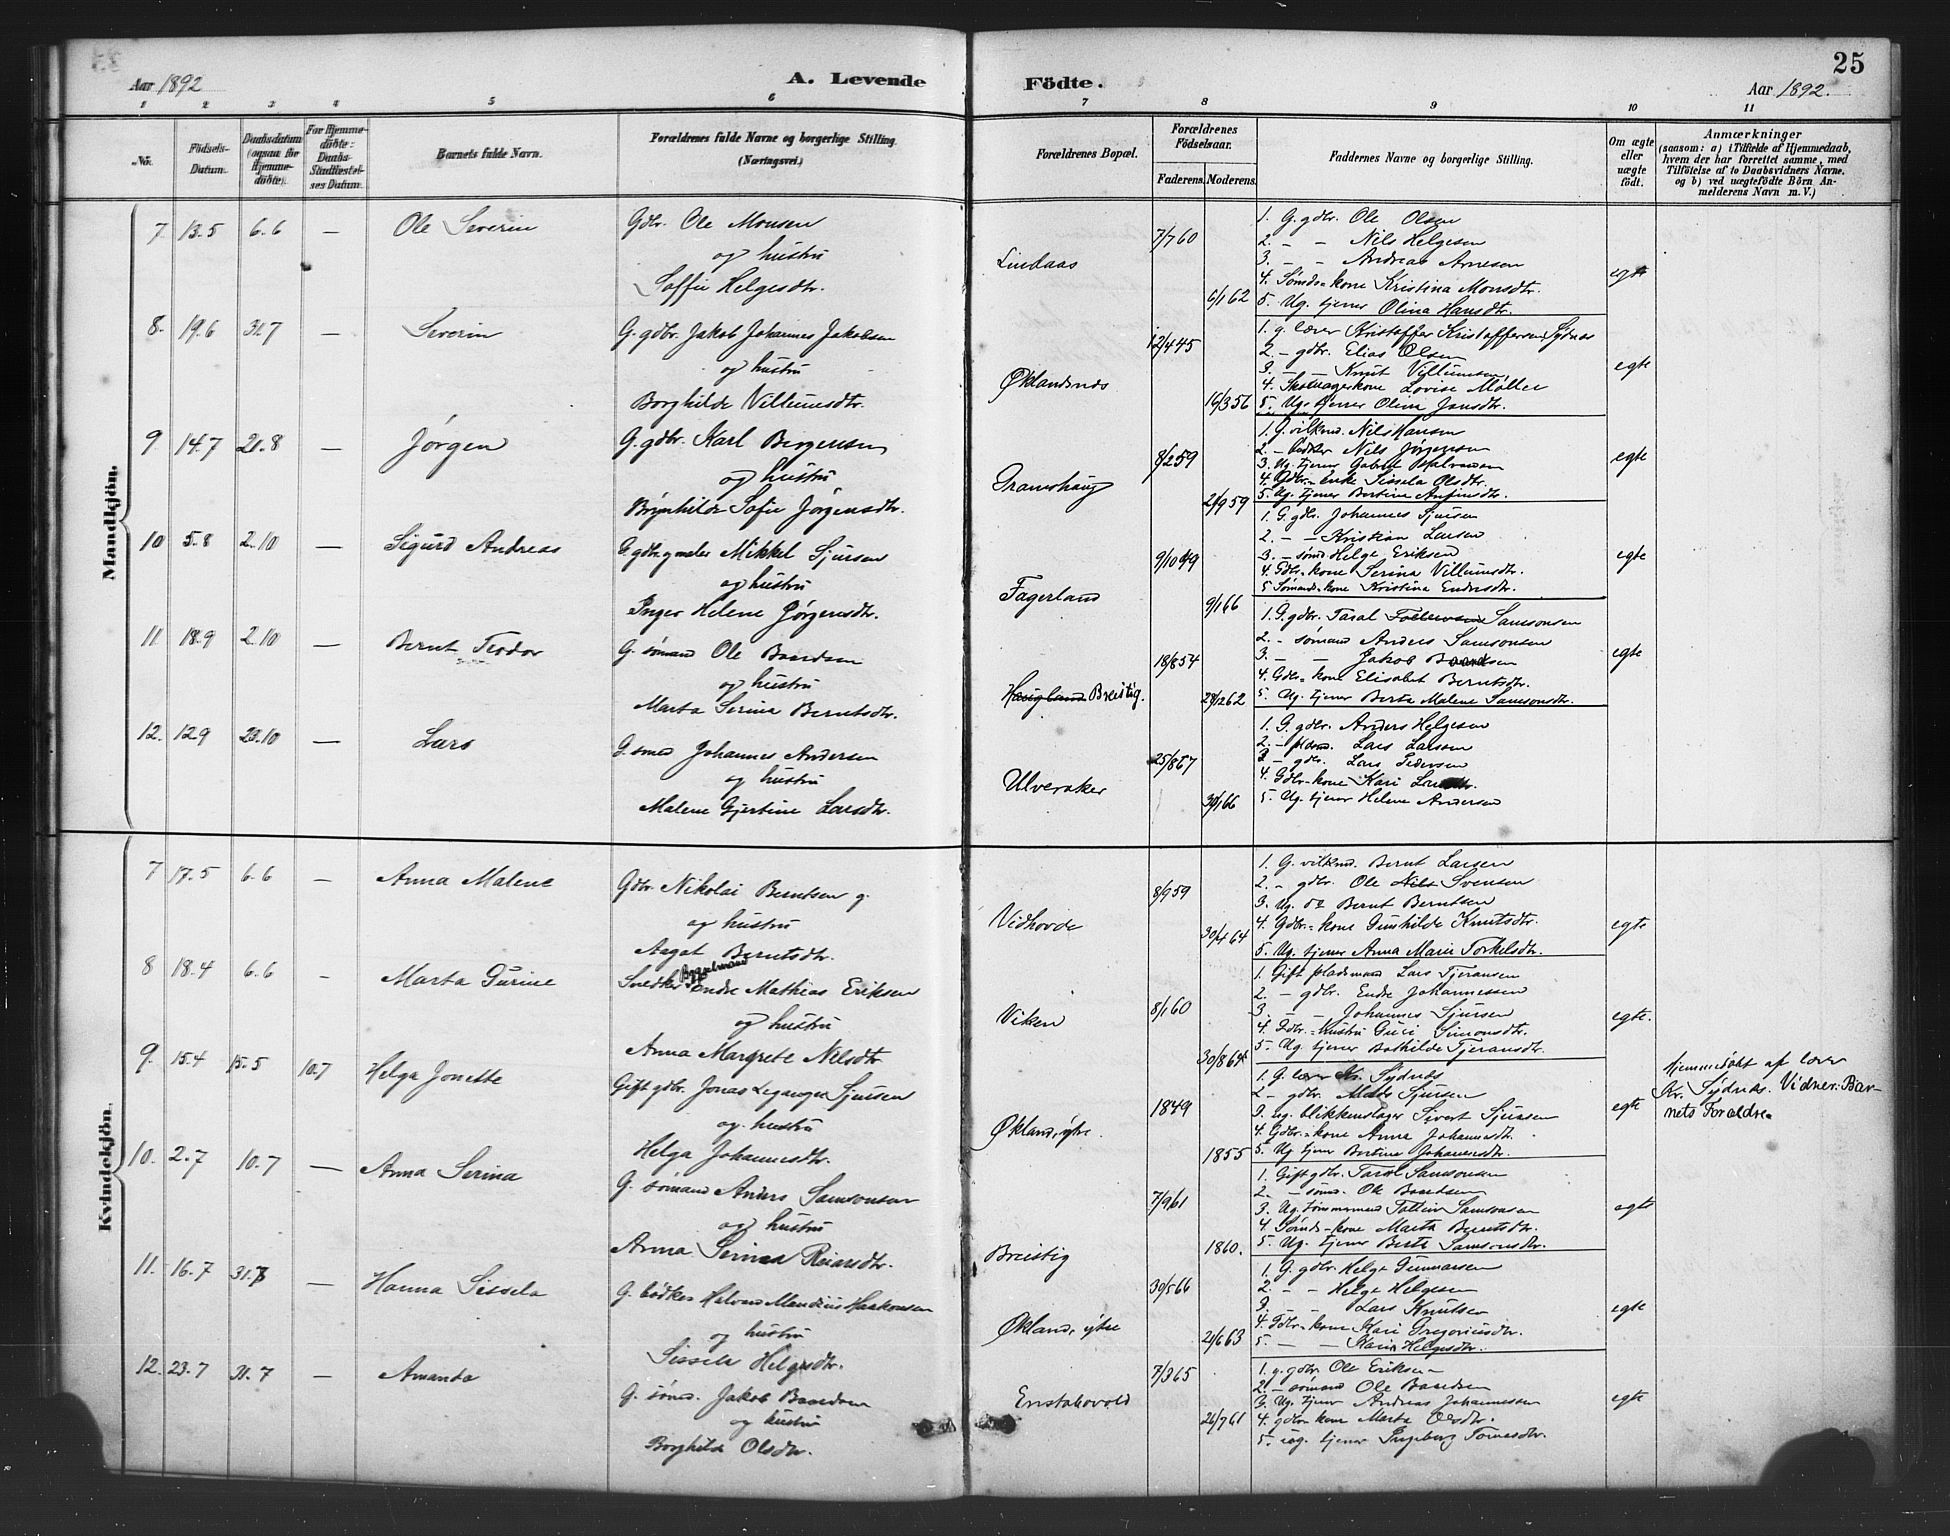 25
Aar 1892
A. Levende
Födte.
Aar 1892.
1 2 3 4 5 6 7 8 9 10 11
No.
Födsels-Datum.
Daabsdatum (ogsaa for Hjemmedöbte).
For Hjemmedöbte: Daabs-Stadfæstelses Datum.
Barnets fulde Navn.
Forældrenes fulde Navne og borgerlige Stilling. (Næringsvei.)
Forældrenes Bopæl.
Forældrenes Födselsaar.
Faderens. Moderens.
Faddernes Navne og borgerlige Stilling.
Om ægte eller uægte födt.
Anmærkninger
(saasom: a) i Tilfælde af Hjemmedaab, hvem der har forrettet samme, med Tilföielse af to Daabsvidners Navne. og b) ved uægtefödte Börn Anmelderens Navn m. V.)
Mandkjön.
7. 13.5 6.6 — Ole Severin
Gdbr. Ole Monsen
og hustru
Soffie Helgesdtr.
Lindaas
7/7 60
6/1 62
1. G. gdbr. Ole Olsen
2. - - Nils Helgesen
3. - - Andreas Arnesen
4. Sømds-kone Kristina Monsdtr.
5. Ug. tjener Olina Hansdtr.
egte
8. 19.6 31.7 — Severin
G. gdbr. Jakob Johannes Jakobsen
og hustru
Borghilde Villumsdtr.
Øklandsnes
12/4 45
16/3 56
1. g. lærer Kristoffer Kristoffersen Sydnes
2. - gdbr. Elias Olsen
3. - - Knut Villumsen
4. Skomagerkone Lovise Møller
5. Ug. tjener Olina Jonsdtr.
egte
9 14.7 21.8 — Jørgen
G. gdbr. Karl Birgersen
og hustru
Brynhilde Sofie Jørgensdtr.
8/2 59
29/9 59
1. G. vilkmd. Nils Hansen
2. - bødker Nils Jørgensen
3. Ug. tjener Gabriel
4. Gdbr. enke Sissela Olsdtr.
5. Ug. tjener Bertine Anfinsdtr.
egte
10 5.8 2.10 — Sigurd Andreas
G. gdbr. g maler Mikkel Sjursen
og hustru
Inger Helene Jørgensdtr.
Fagerland
9/10 49
9/1 66
1. G. gdbr. Johannes Sjursen
2. - - Kristian Larsen
3. - sømd Helge Eriksen
4. Gdbr-kone Serina Villumsdtr.
5 Sømands-kone Kristina Endresdtr.
egte
11. 18.9 2.10 — Bernt Teodor
G. sømand Ole Baardsen
og hustru
Marta Serina Berntsdtr.
Haugland Breistig.
18/8 54
28/12 62
1. G. gdbr. Taral Samsonsen
2. - sømand Anders Samsonsen
3. - - Jakob Baardsen
4. Gdbr-kone Elisabet Berntsdtr.
5. Ug. tjener Berta Malene Samsonsdtr.
egte
12. 12.9 23.10 — Lars
G. sømd Johannes Andersen
og hustru
Malene Gjertine Larsdtr.
Ulveraker
25/8 67
30/1 66
1. G. gdbr. Anders Helgesen
2. - pladsmd. Lars Larsen
3 - gdbr. Lars Pedersen
4. Gdbr-kone Kari
5. Ug. tjener Helene Andersen
Kvindekjön.
7 17.5 6.6 — Anna Malene
Gdbr. Nikolai Berntsen g.
og hustru
Aagat Berntsdtr.
Vidhovde
8/9 59
30/4 64
1. G. vilkmd. Bernt Larsen
2. - gdbr. Ole Nils Svensen
3. Ug. do Bernt Berntsen
4. Gdbr.-kone Gunhilde Knutsdtr.
5. Ug. tjener Anna Marie Torkilsdtr.
egte
8 18.4 6.6 - Marta Gurine
Snedker Bygselmand Endre Mathias Eriksen
og hustru
Anna Margrete Nilsdtr
Viken
8/1 60
30/8 64
1. Gift pladsmand Lars Tjeransen
2. - gdbr. Endre Johannessen
3. - - Johannes Sjursen
4. Gdbr.-hustru Guri Simonsdtr.
5. Ug. tjener Bothilde Tjeransdtr.
egte.
9. 15.4 15.5 10.7 Helga Jonette
Gift gdbr. Jonas Leganger Sjursen
og hustru
Helga Johannesdtr.
Økland, ytre.
1849
1855
1. G. lærer Kr. Sydnes
2 - gdbr. Mads Sjursen
3 ug. blikkenslager Sivert Sjursen
4. Gdbr.-kone Anna Johannesdtr.
5. Ug tjener Bertine Johannesdtr.
egte
Hjemmedøbt af lærer
Kr. Sydnes. Vidner: Bar-
nets Forældre
10. 2.7 10.7 — Anna Serina
G. sømand Anders Samsonsen
og hustru
Anna Serina Reiarsdtr.
Breistig
7/9 61
1860.
1. Gift gdbr. Taral Samsonsen
2. - sømd. Ole Baardsen
3. Ug. tømmermand Samsonsen
4. Sømds-kone Marta Berntsdtr.
5. Ug. tjener Berte Samsonsdtr.
egte
11. 16.7 31.7 — Hanna Sissela
G. bødker Halvard Mandius Haakonsen
og hustru
Sissela Helgesdtr.
Økland, ytre
30/5 66
21/6 63
1. G. gdbr. Helge Gunnarsen
2. - - Helge Helgesen
3. - - Lars Knutsen
4. Gdbr-kone Kari Gregoriusdtr.
5. - - Karin Helgesdtr.
egte
12. 23.7 31.7 — Amanda
G. sømd. Jakob Baardsen
og hustru
Borghilde Olsdtr.
7/3 65
26/7 61
1. g. gdbr Ole Eriksen
2. - sømand Ole Baardsen
3. Ug. tjener Andreas Johannessen
4. gdbr kone Marta Olsdtr.
5. ug. tjener Ingeborg Tomesdtr.
egte